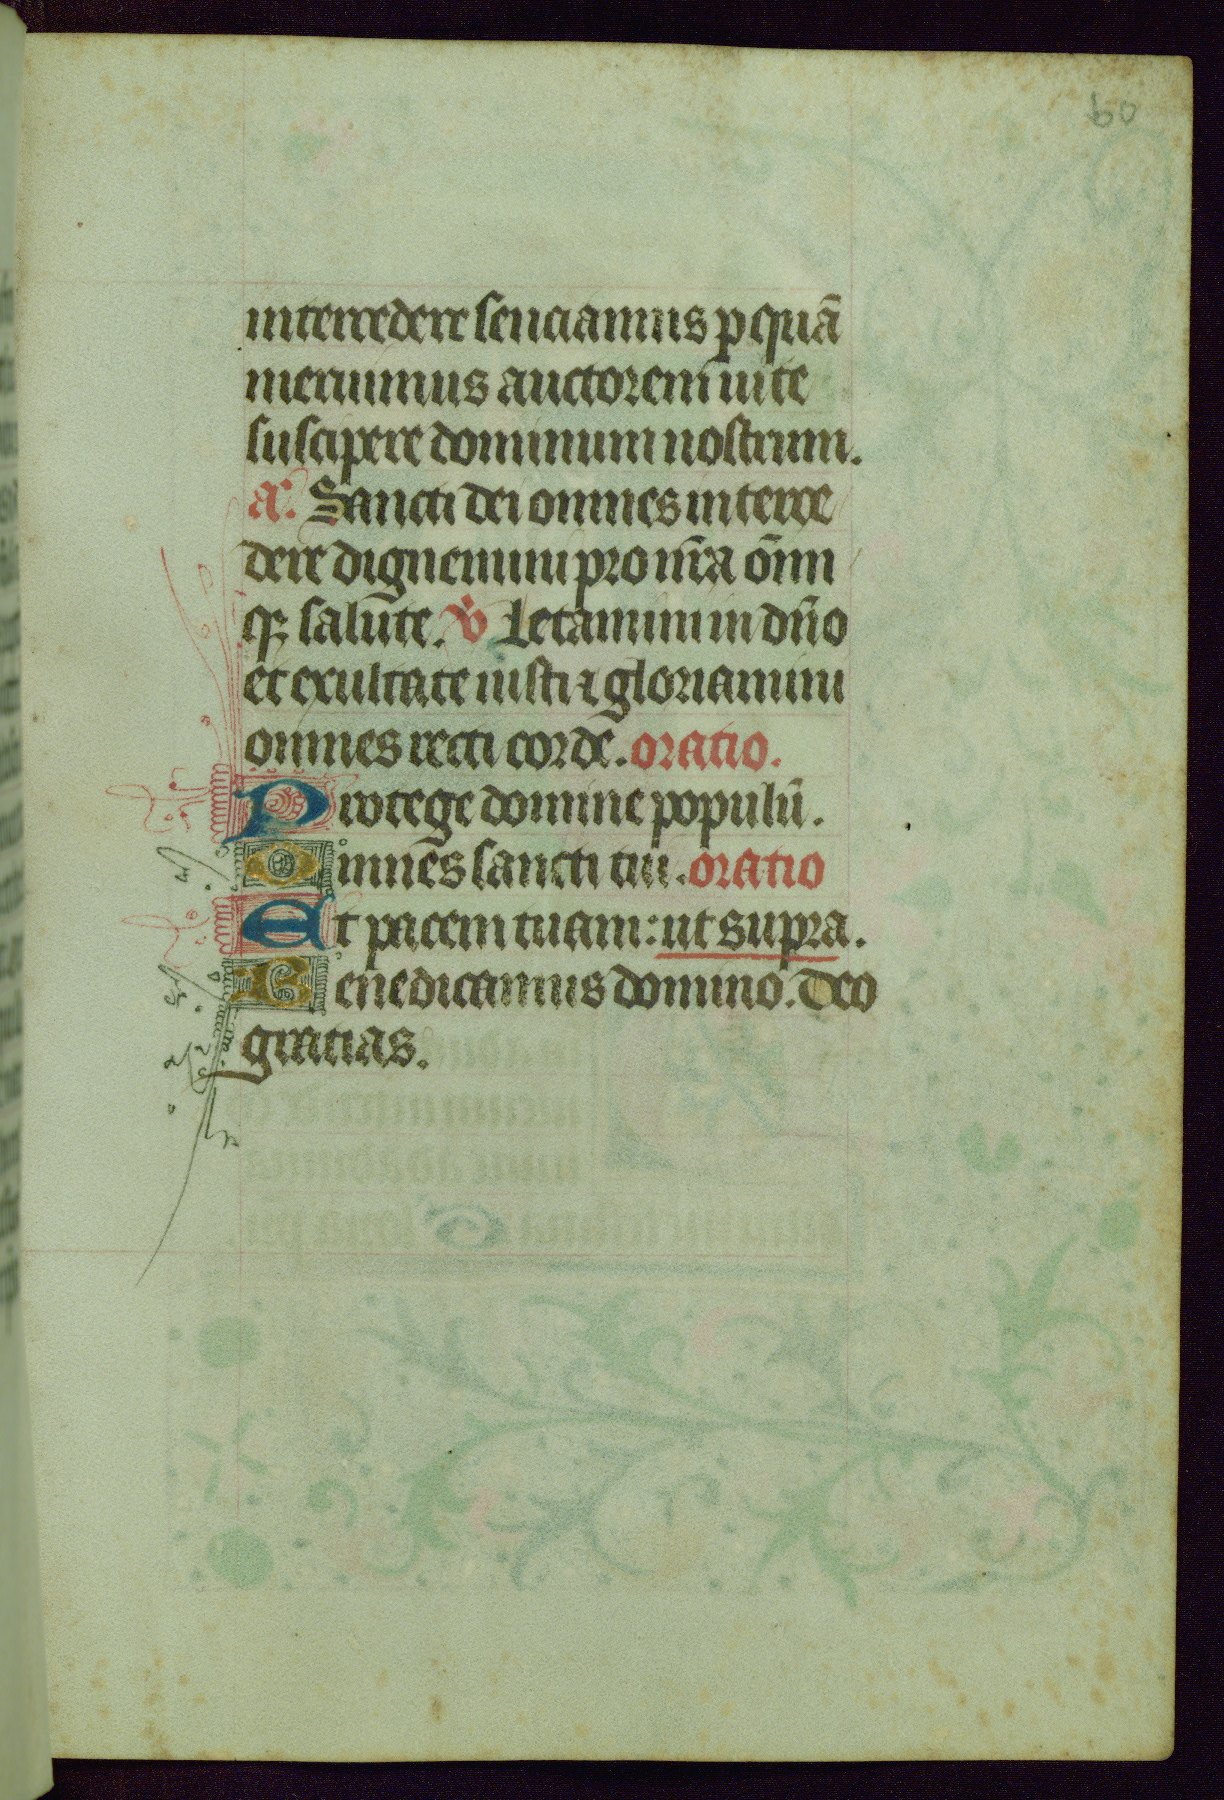 60
intercedere senciamus p quā
meruimus auctorem uite
suscipere dominum nostrum.
a. Sancti dei omnes interce
dere dignemini pro nr̄a om̄i
q3 salute. v Letamini in dn̄o
et exultate iusti ⁊ gloriamini
omnes recti corde. oratio.
Protege domine populū.
Omnes sancti tui. oratio
Et pacem tuam: ut supra.
Benedicamus domino. Deo
gracias.